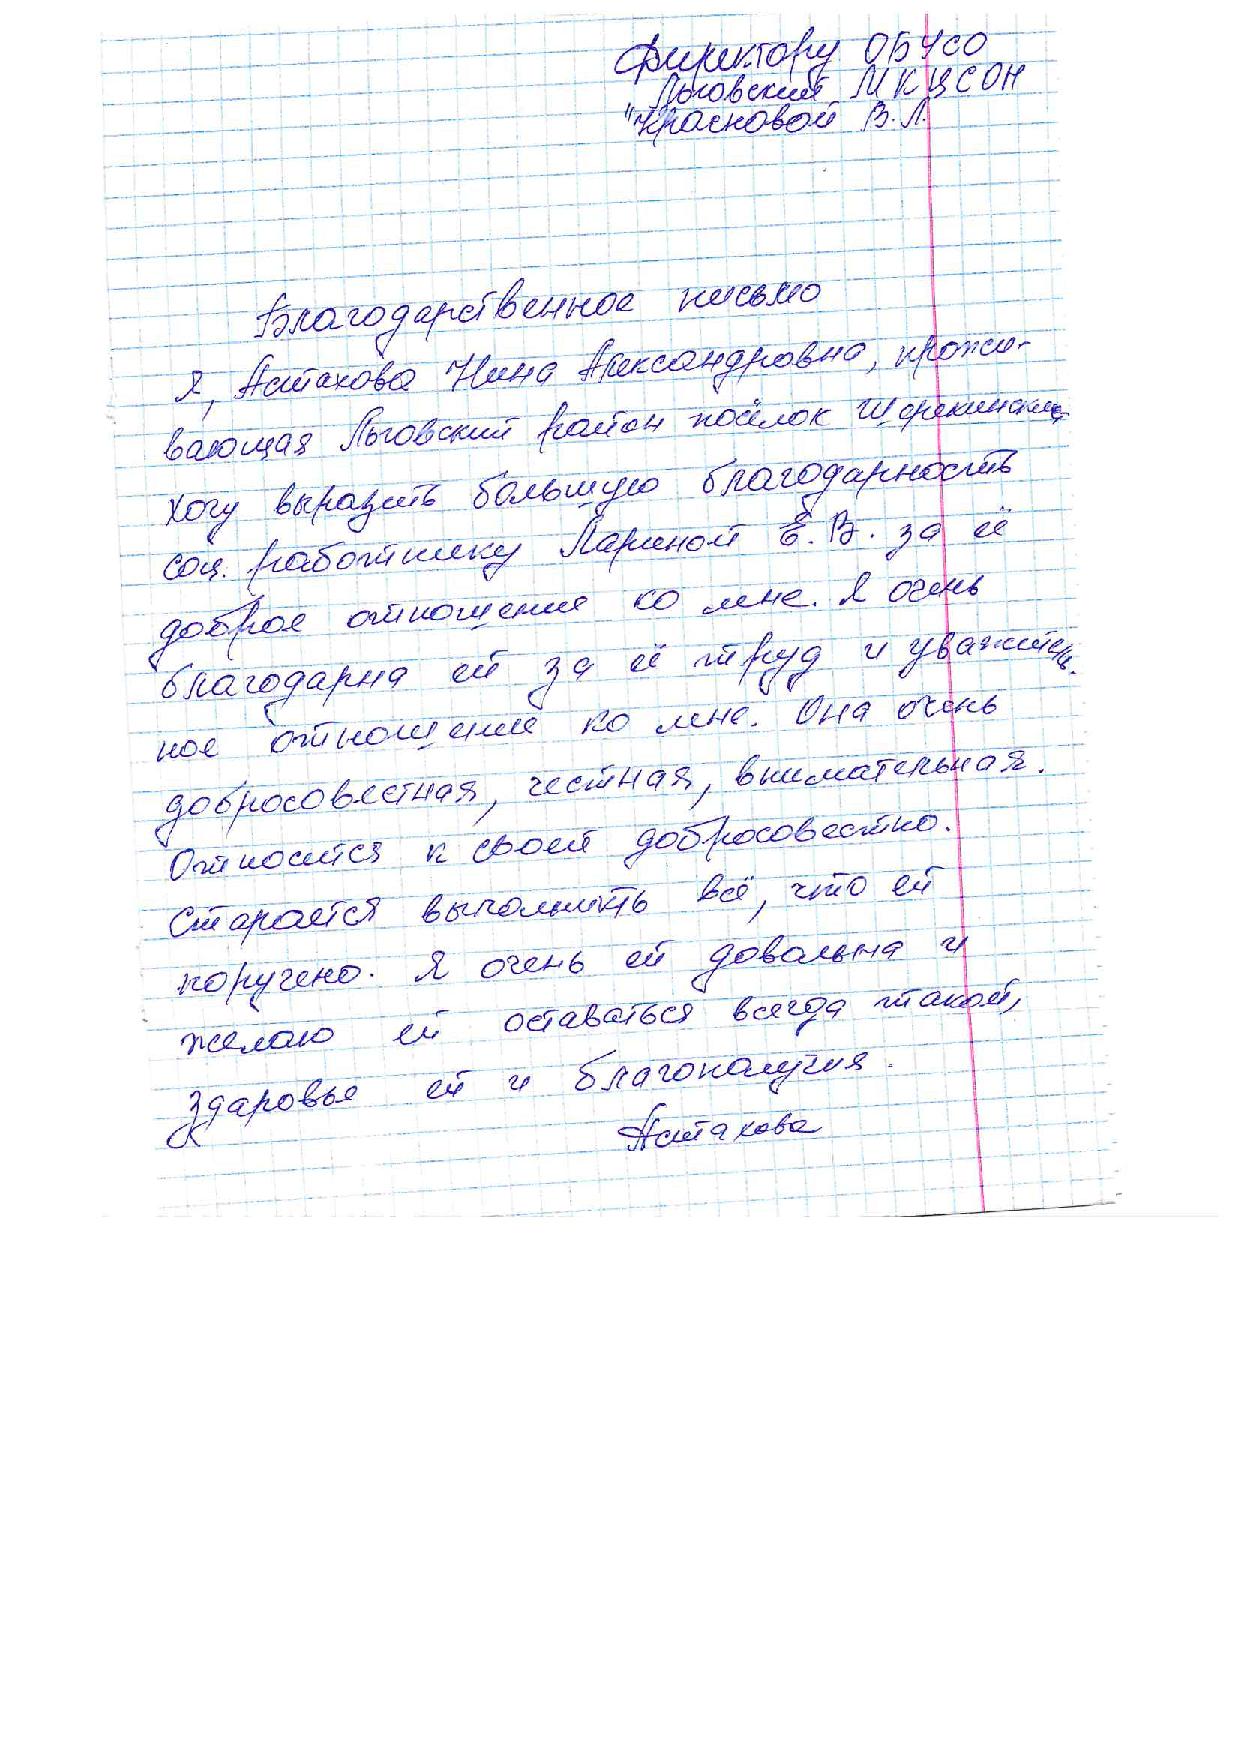 Директору ОБУСО
Льговский МКЦСОН
"Красновой В.Л.
Благодарственное письмо
Я, Астахова Нина Александровна, прожи-
вающая Льговский район посёлок Шерекинский,
хочу выразить большую благодарность
соц. работнику Лариной Е.В. за её
доброе отношение ко мне. Я очень
благодарна ей за её труд и уважитель-
ное отношение ко мне. Она очень
добросовестная, честная, внимательная.
Относится к своей добросовестно.
Старается выполнить всё, что ей
поручено. Я очень ей довольна и
желаю ей оставаться всегда такой,
здоровье ей и благополучия.
Астахова